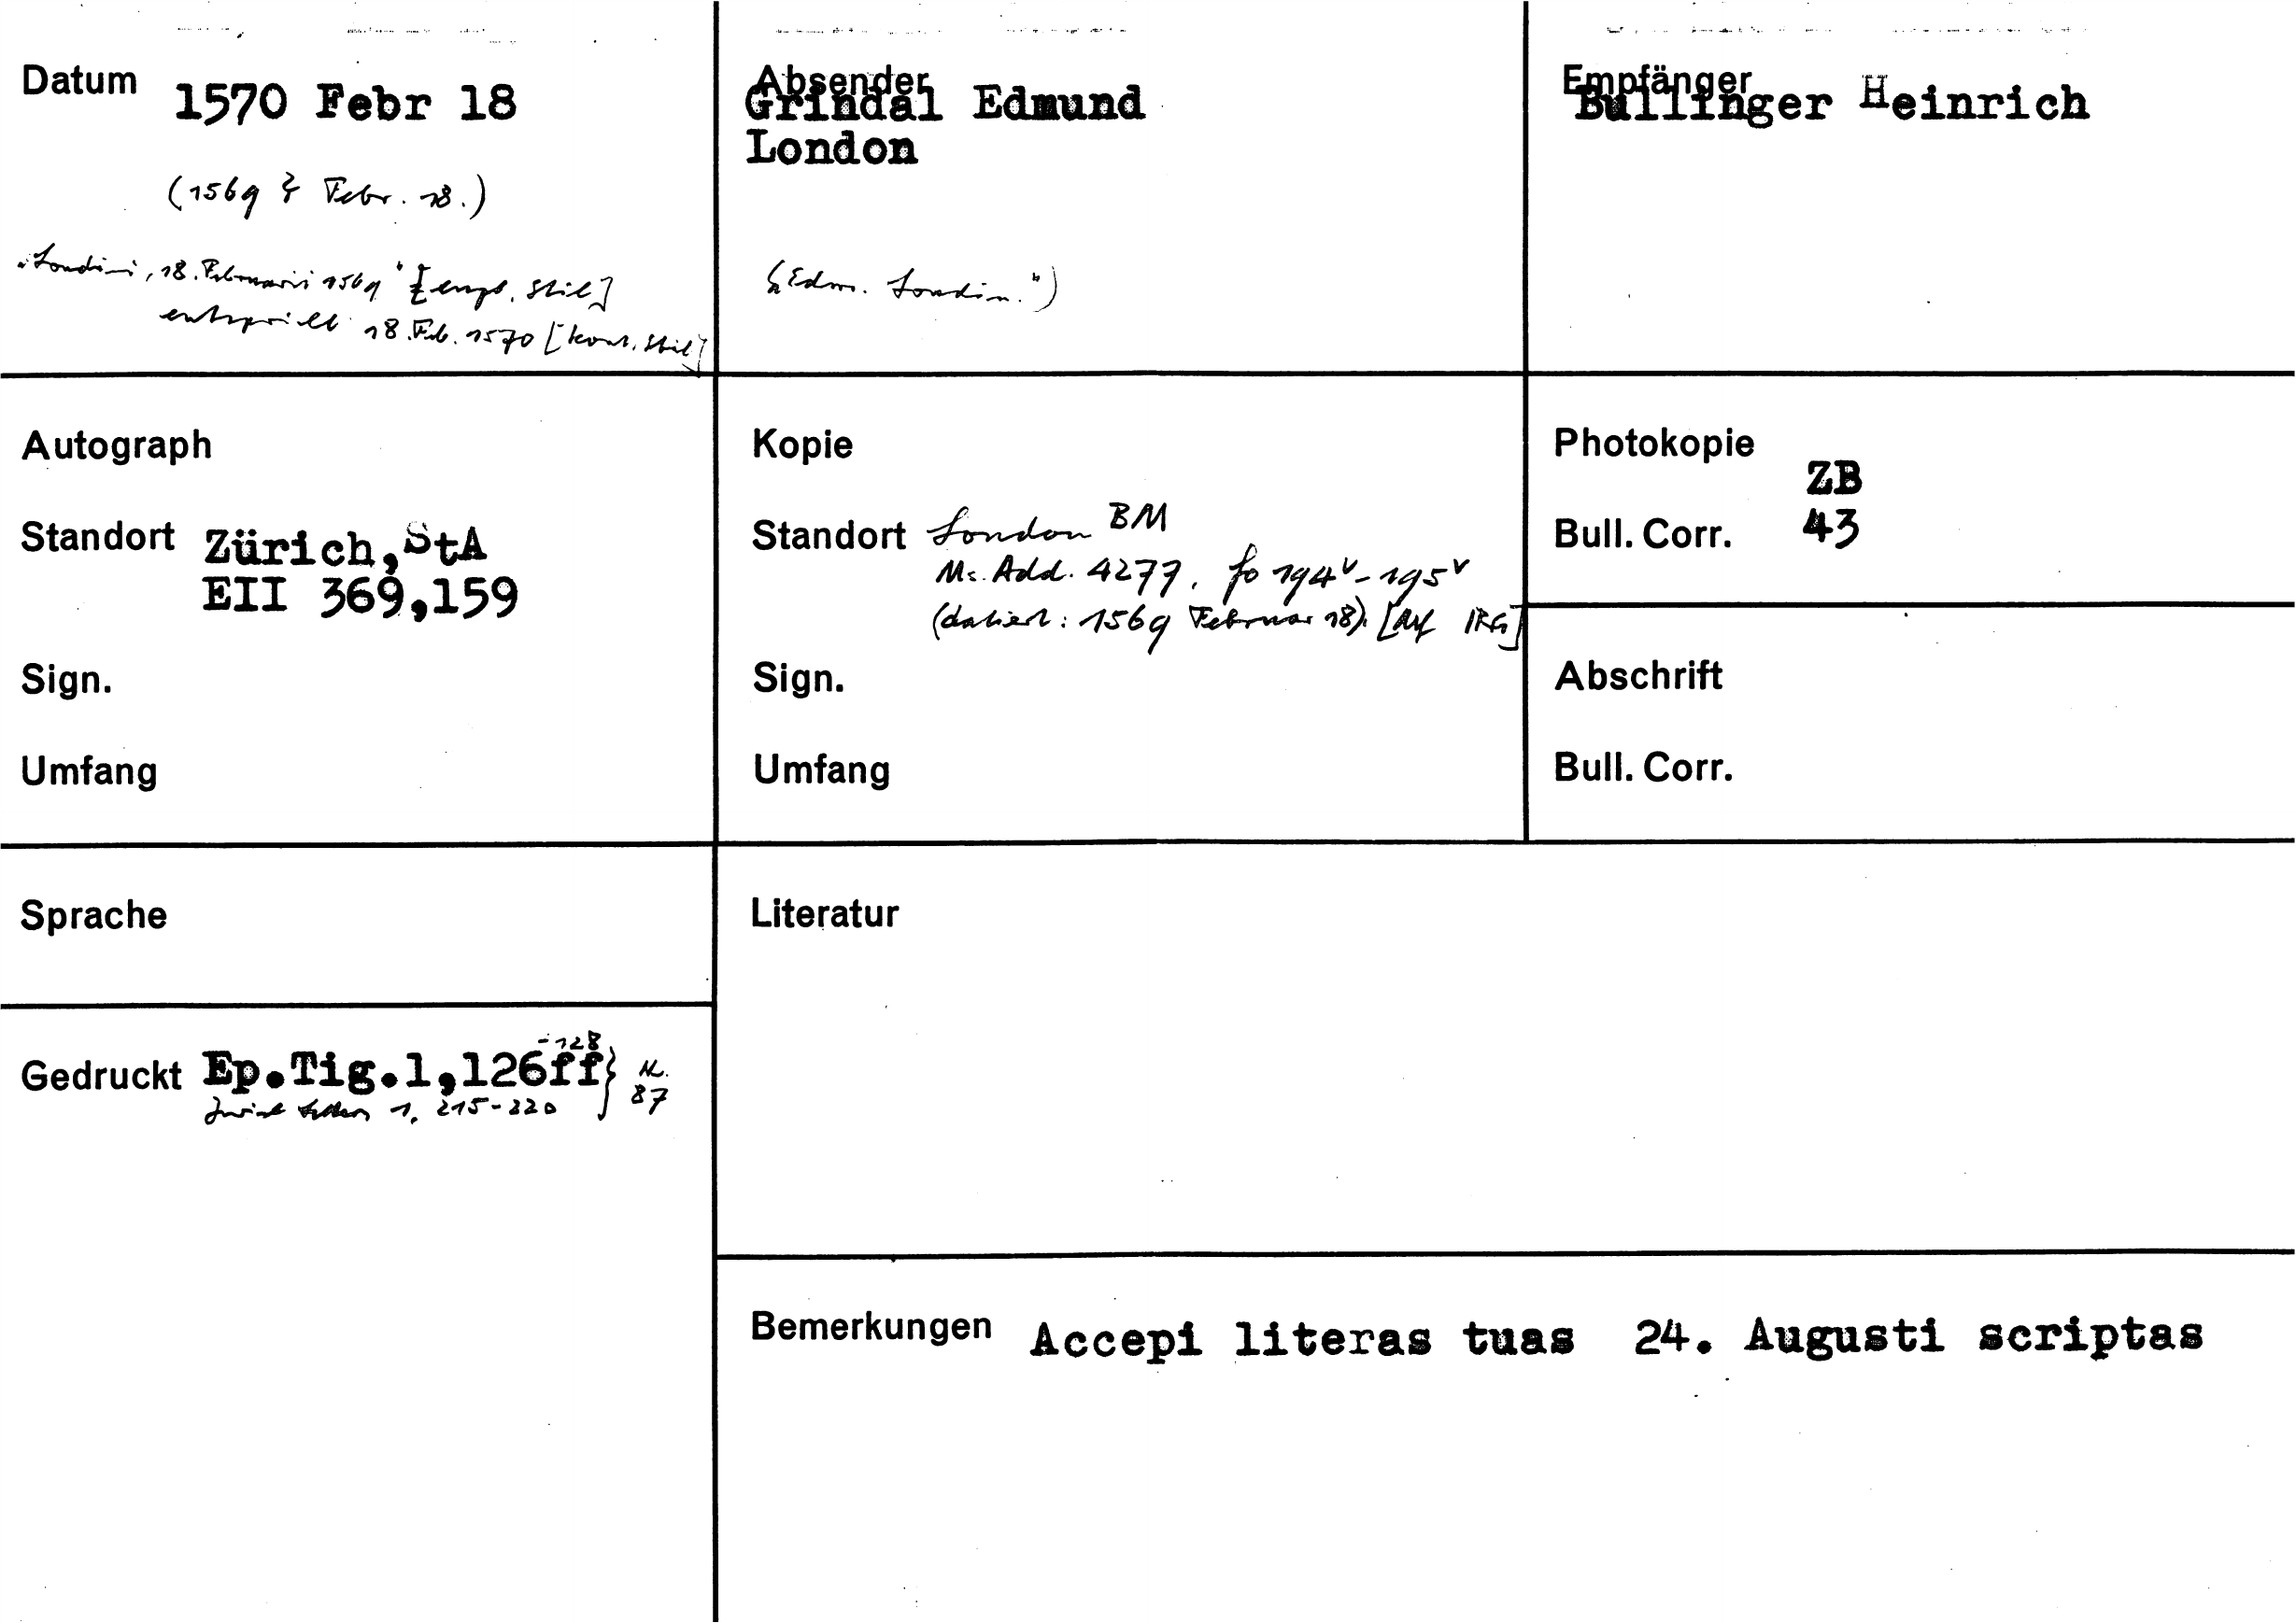 Datum 1570 Febr 18
(1569 Febr. 18.)
"Londini, 18. Februarii 1569" [engl. Stil]
entspricht 18. Feb. 1570 [kont. Stil]
Absender
Grindal Edmund
London
("Edm. Londin.")
Empfänger
Bullinger Heinrich
Autograph
Standort Zürich, StA
EII 369,159
Sign.
Umfang
Kopie
Standort London BM
Ms. Add. 4277, fo 194v-195v
(datiert: 1569 Februar 18). [Auf IRG]
Sign.
Umfang
Photokopie
ZB
Bull. Corr. 43
Abschrift
Bull. Corr.
Sprache
Gedruckt Ep.Tig.1,126ff -128
Zurich Letters 1, 215-220
87
Literatur
Bemerkungen Accepi literas tuas 24. Augusti scriptas